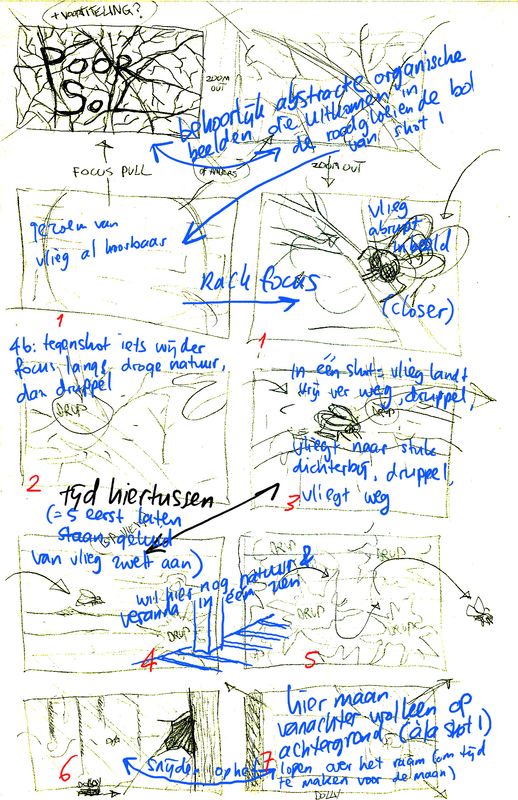 + VOORTITELING?
POOR
SOIL
ZOOM
OUT
behoorlijk abstracte organische
beelden die uitkomen in
de roodgloeiende bol
van shot 1
FOCUS PULL
OF ANDERS
ZOOM OUT
zoemen van
vlieg al hoorbaar
1
Rack focus
vlieg
abrupt
in beeld
(closer)
1
4b: tegenshot iets wijder
focus langs droge natuur,
dan druppel
DRUP
2
In één shot = vlieg landt
vrij ver weg, druppel,
DRUP
vliegt naar stuk
dichterbij, druppel,
vliegt weg
3
tijd hiertussen
(= 5 eerst laten
staan geluid
van vlieg zwelt aan)
wil hier nog natuur &
veranda in één zien
DRUP
4
DRUP
DRUP
DRUP
DRUP
5
6
DOLLY
snijden op het
7
hier maan
vanachter wolken op
achtergrond (à la shot 1)
lopen over het raam (om tijd
te maken voor de maan)
DOLLY